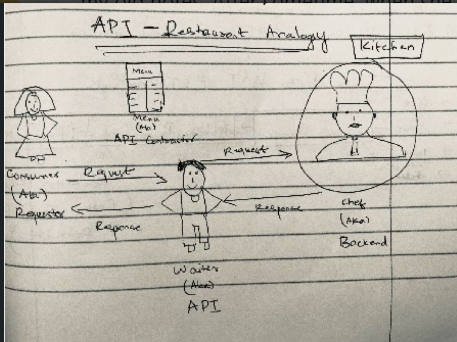 API - Restaurant Analogy
Kitchen
Menu
Menu
(Aka)
API Contractor
Request
Consumer
Request
(Aka)
Requestor
Response
Response
Chef
(Aka)
Backend
Waiter
(Aka)
API